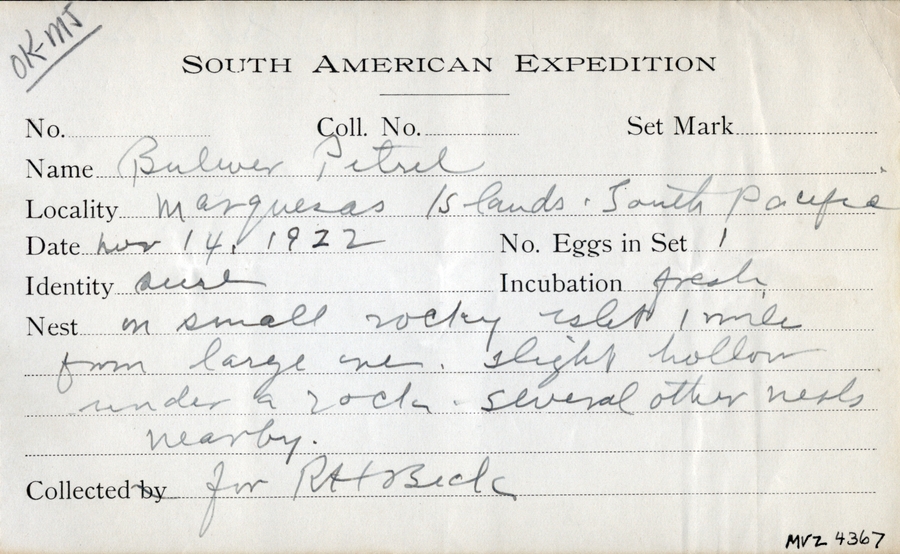 OK-MJ
SOUTH AMERICAN EXPEDITION
No. Coll. No. Set Mark
Name Bulwer Petrel
Locality Marquesas Islands. South Pacific
Date Nov 14, 1922 No. Eggs in Set 1
Identity sure Incubation fresh
Nest on small rocky islet 1 mile
from large one. slight hollow
under a rock. several other nests
nearby.
Collected by for RH Beck
MVZ 4367